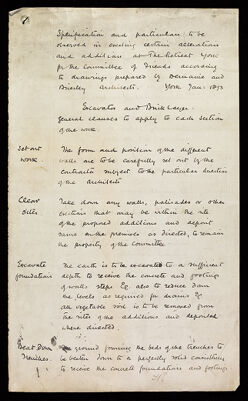 Specification and particulars to be
observed in erecting certain alterations
and additions at The Retreat York
for the Committee of Friends according
to drawings prepared by Demaine and
Brierley Architects. York Jan: 1893
Excavator and Bricklayer
General clauses to apply to each section
of the work
Set out
work.
The form and position of the different
walls are to be carefully set out by the
contractor subject to the particular direction
of the Architects
Clear
Site.
Take down any walls, palisades or other
erections that may be within the site
of the proposed additions and deposit
same on the premises as directed, to remain
the property of the Committee
Excavate
foundations
The earth is to be excavated to a sufficient
depth to receive the concrete and footings
of walls steps &c also to reduce down
the levels as required for drains &c
all vegetable soil is to be removed from
the sites of the additions and deposited
where directed.
Beat Down
Trenches.
The ground forming the beds of the trenches to
be beaten down to a perfectly solid consistency
to receive the concrete foundations and footings